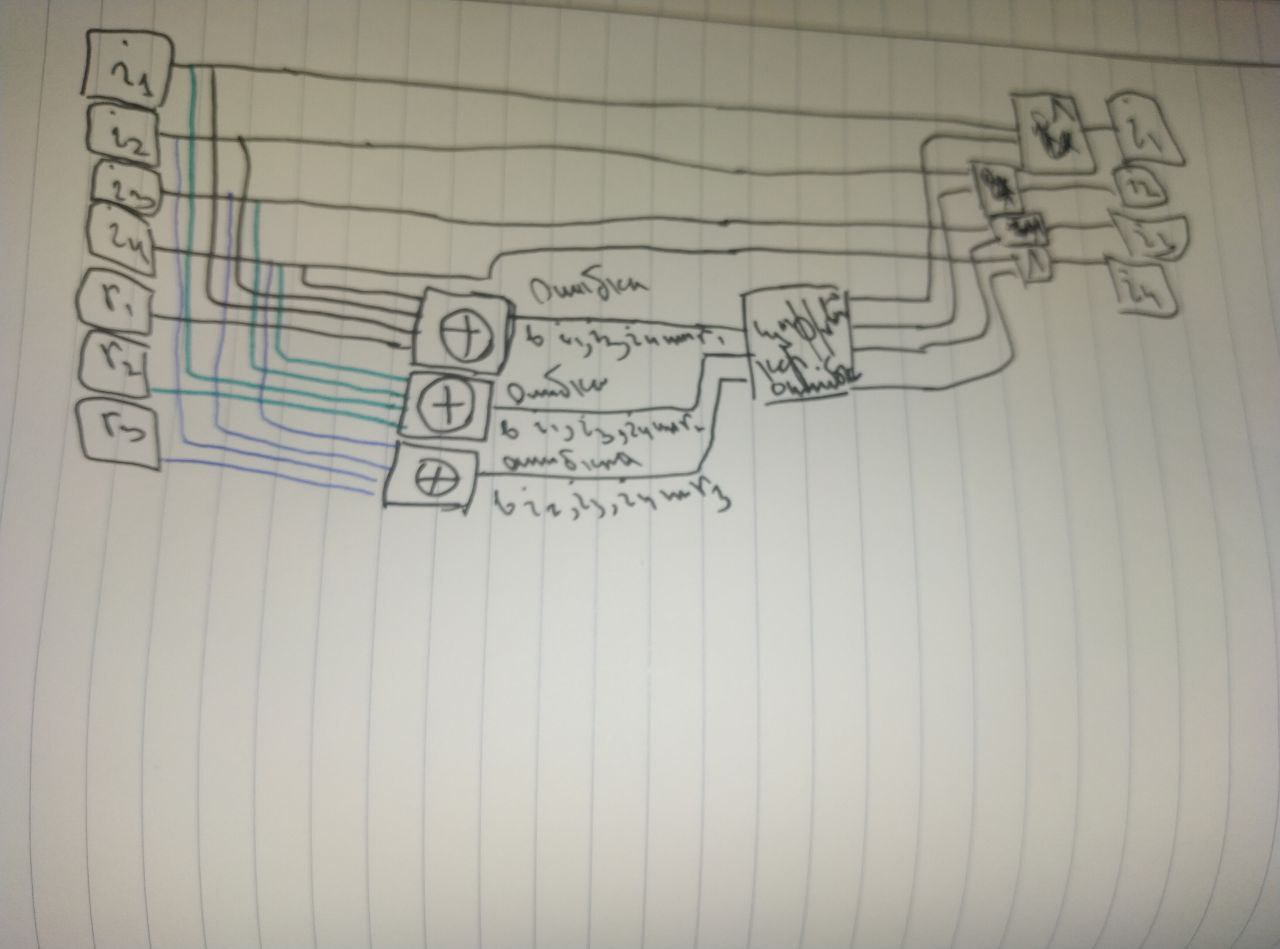 i1
i2
i3
i4
r1
r2
r3
Ошибка
в i1, i2, i4 или r1
Ошибка
в i1, i3, i4 или r2
ошибка
в i2, i3, i4 или r3
ошибок
i1
i2
i3
i4